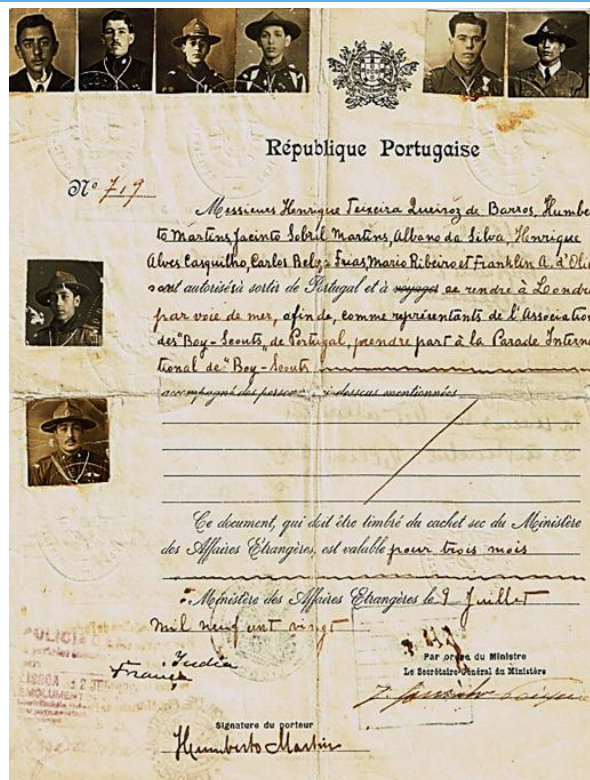 République Portugaise
Nº 719
Messieurs Henrique Teixeira Queiroz de Barros, Humber
to Martins, Jacinto Sobril Martins, Albano da Silva, Henrique
Alves Casquilho, Carlos Belo Frias, Mario Ribeiro et Franklin A. d'Oliv
sont autorisés à sortir de Portugal et à voyager se rendre à Londre
par voie de mer, afin de, comme représentants de l'Association
des "Boy-Scouts" de Portugal, prendre part à la Parade Interna
tional de "Boy-Scouts
accompagné des personnes ci-dessus mentionnées
Ce document, qui doit être timbré du cachet sec du Ministère
des Affaires Étrangères, est valable pour trois mois
Ministère des Affaires Étrangères le 9 Juillet
mil neuf cent vingt
POLICIA
LISBOA 2
EMOLUMENTO
India
França
Par ordre du Ministre
Le Secrétaire Général du Ministère
Signature du porteur
Humberto Martins